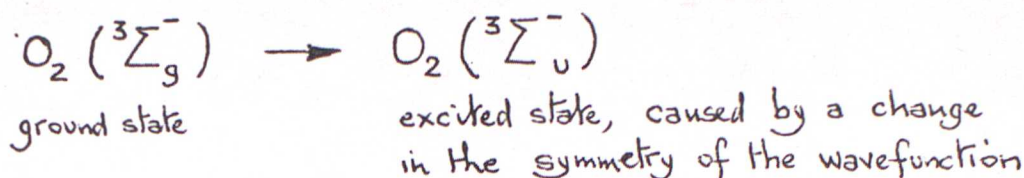 O₂ (³Σ⁻g) → O₂ (³Σ⁻u)
ground state excited state, caused by a change
in the symmetry of the wavefunction